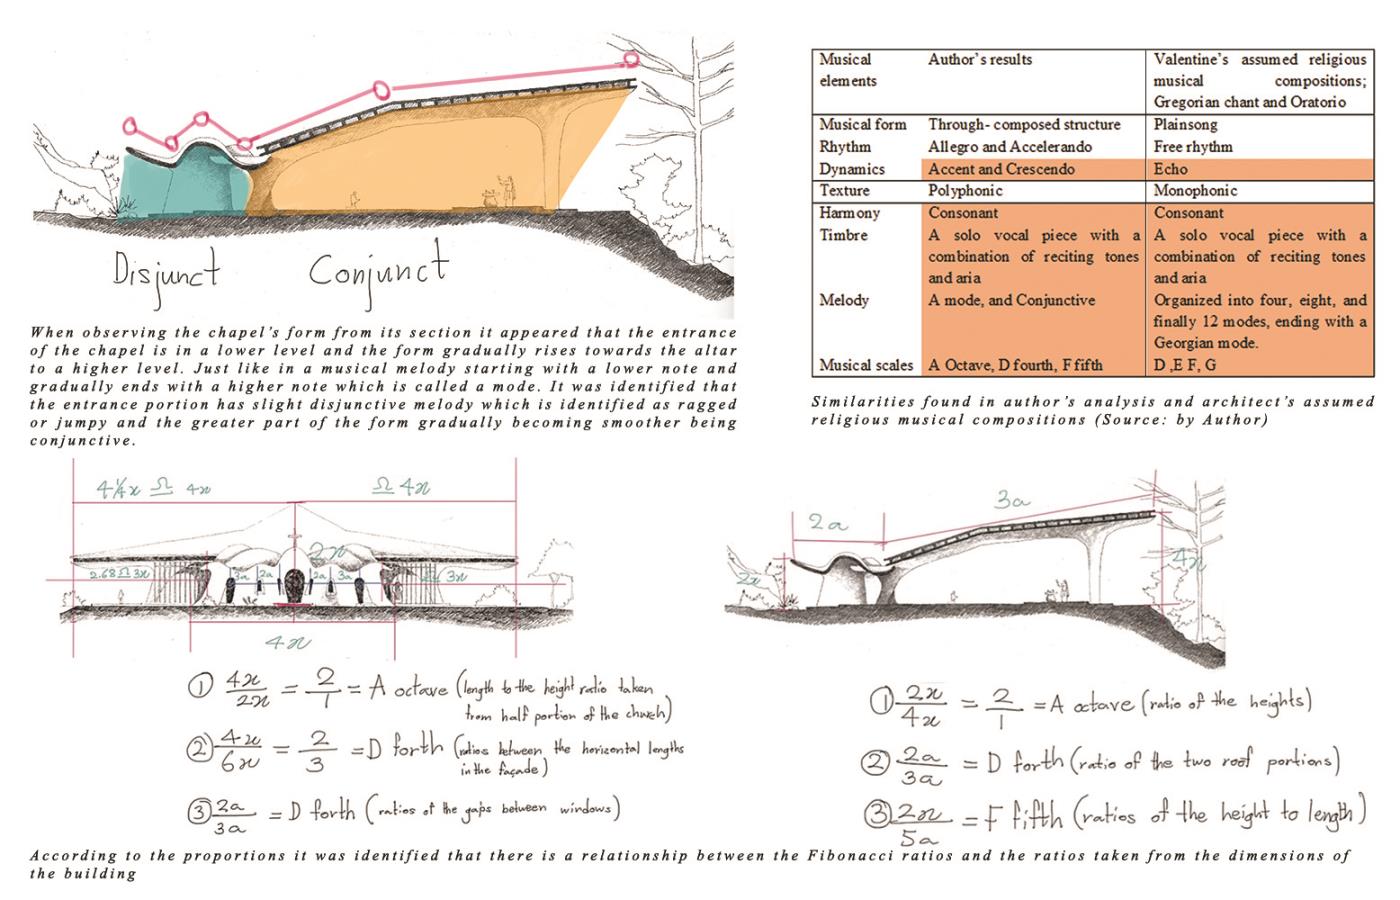 Disjunct
Conjunct
When observing the chapel's form from its section it appeared that the entrance
of the chapel is in a lower level and the form gradually rises towards the altar
to a higher level. Just like in a musical melody starting with a lower note and
gradually ends with a higher note which is called a mode. It was identified that
the entrance portion has slight disjunctive melody which is identified as ragged
or jumpy and the greater part of the form gradually becoming smoother being
conjunctive.
Musical elements
Author's results
Valentine's assumed religious musical compositions; Gregorian chant and Oratorio
Musical form
Through- composed structure
Plainsong
Rhythm
Allegro and Accelerando
Free rhythm
Dynamics
Accent and Crescendo
Echo
Texture
Polyphonic
Monophonic
Harmony
Consonant
Consonant
Timbre
A solo vocal piece with a combination of reciting tones and aria
A solo vocal piece with a combination of reciting tones and aria
Melody
A mode, and Conjunctive
Organized into four, eight, and finally 12 modes, ending with a Georgian mode.
Musical scales
A Octave, D fourth, F fifth
D ,E F, G
Similarities found in author's analysis and architect's assumed
religious musical compositions (Source: by Author)
4¼x Ω 4x
Ω 4x
2x
2.68 Ω 3x
3a
2a
2a
3a
3x
4x
① 4x/2x = 2/1 = A octave (length to the height ratio taken
from half portion of the church)
② 4x/6x = 2/3 = D forth (ratios between the horizontal lengths
in the façade)
③ 2a/3a = D forth (ratios of the gaps between windows)
2a
3a
2x
4x
① 2x/4x = 2/1 = A octave (ratio of the heights)
② 2a/3a = D forth (ratio of the two roof portions)
③ 2x/5a = F fifth (ratios of the height to length)
According to the proportions it was identified that there is a relationship between the Fibonacci ratios and the ratios taken from the dimensions of
the building